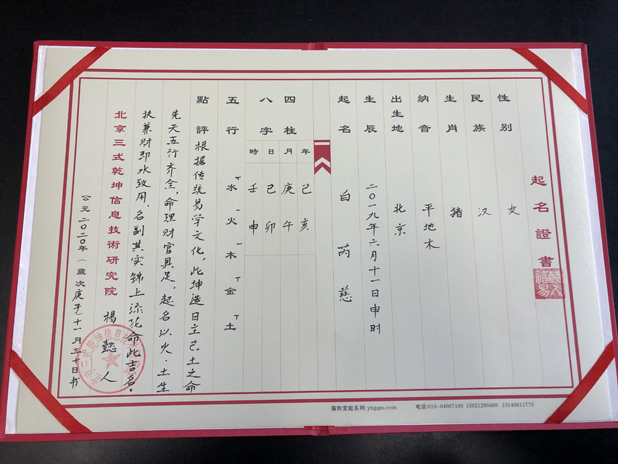 起名證書
性別 女
民族 汉
生肖 猪
納音 平地木
出生地 北京
生辰 二〇一九年六月十一日申时
起名 白芮慈
四柱 年 月 日 時
八字 己亥 庚午 己卯 壬申
五行 水 火 木 金 土
點評 根据传统易学文化,此坤造日主己土之命
先天五行齐全,命理财官具足,起名以火、土生
扶兼财印水致用,名副其实锦上添花命此吉名。
北京三式乾坤信息技術研究院 杨懿人
公元二〇二〇年(歲次庚子十一月三十日书
電話:010-84987185 13621280400 13146811775